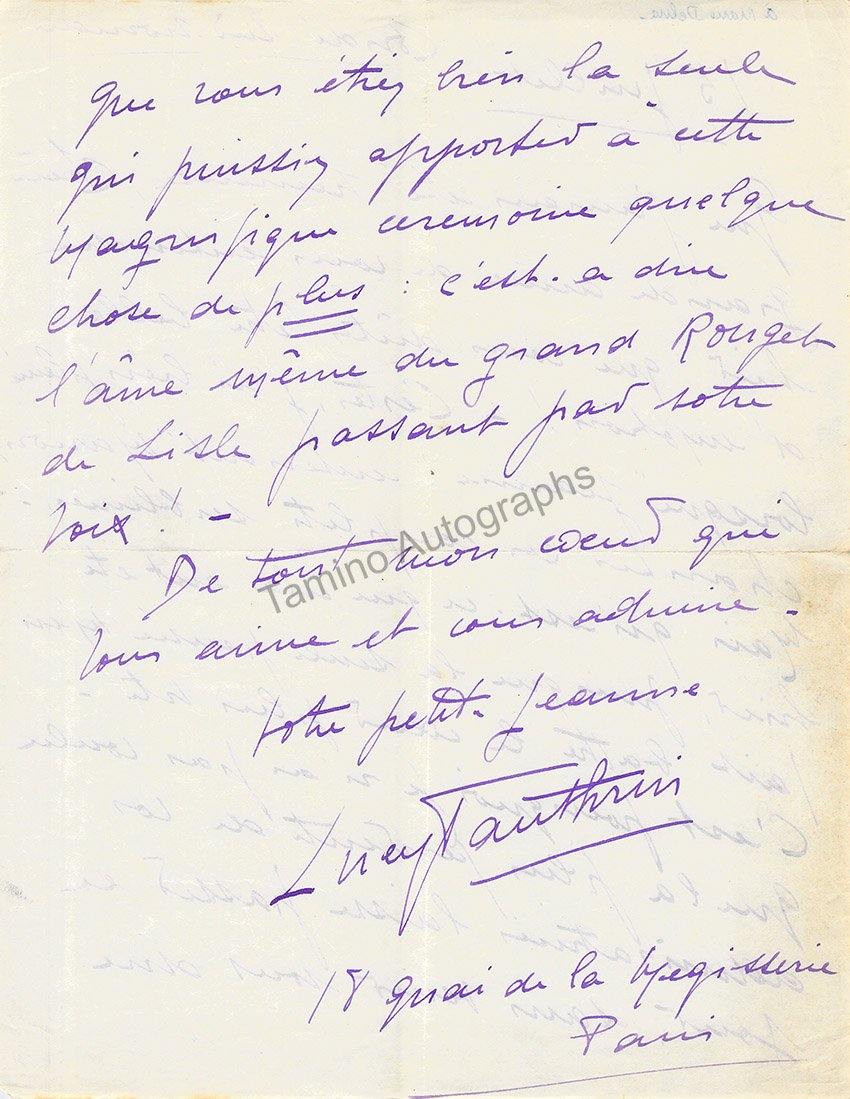 à Mario Delna
que vous étiez bien la seule
qui puissiez apporter à cette
Magnifique ceremonie quelque
chose de plus : c'est-a dire
l'âme même du grand Rouget
de Lisle passant par votre
voix ! -
De tout mon cœur qui
vous aime et vous admire -
Votre petite Jeanne
Lucy Tauthrin
18 quai de la Megisserie
Paris
Tamino Autographs